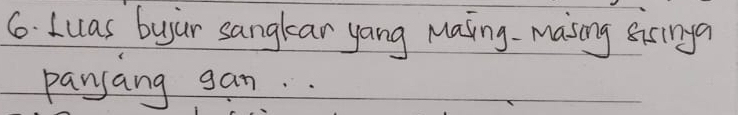 6. Luas bujur sangkar yang Masing-Masing sisinya
panjang gan . . .